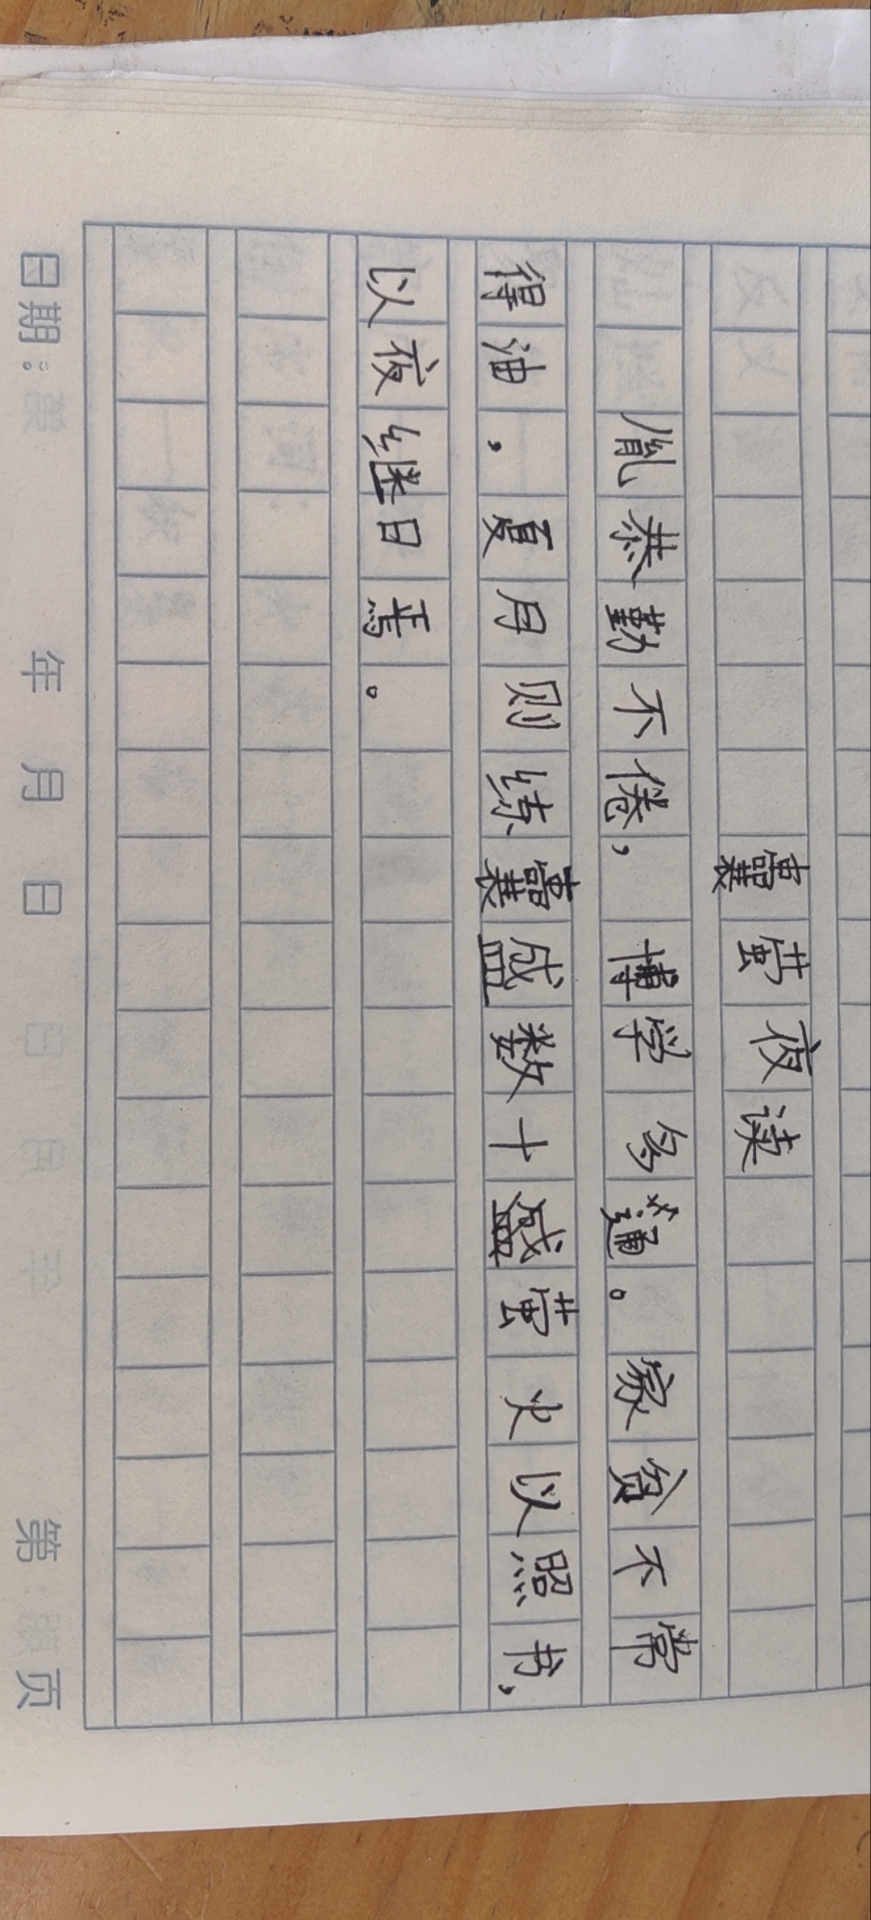 囊萤夜读
胤恭勤不倦，博学多通。家贫不常
得油，夏月则练囊盛数十盛萤火以照书，
以夜继日焉。
日期： 年 月 日 第 页